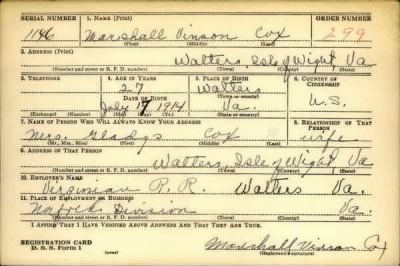 SERIAL NUMBER 1. NAME (Print) ORDER NUMBER
1146 Marshall Vinson Cox 299
(First) (Middle) (Last)
2. ADDRESS (Print)
Walters, Isle of Wight Va
(Number and street or R. F. D. number) (Town) (County) (State)
3. TELEPHONE 4. AGE IN YEARS 5. PLACE OF BIRTH 6. COUNTRY OF CITIZENSHIP
27 Walters
DATE OF BIRTH (Town or county)
July 17 1914 Va. U.S.
(Exchange) (Number) (Mo.) (Day) (Yr.) (State or country)
7. NAME OF PERSON WHO WILL ALWAYS KNOW YOUR ADDRESS 8. RELATIONSHIP OF THAT PERSON
Mrs. Gladys Cox wife
(Mr., Mrs., Miss) (First) (Middle) (Last)
9. ADDRESS OF THAT PERSON
Walters, Isle of Wight Va
(Number and street or R. F. D. number) (Town) (County) (State)
10. EMPLOYER'S NAME
Virginian R. R. Walters Va.
11. PLACE OF EMPLOYMENT OR BUSINESS
Norfolk Division Va
(Number and street or R. F. D. number) (Town) (County) (State)
I AFFIRM THAT I HAVE VERIFIED ABOVE ANSWERS AND THAT THEY ARE TRUE.
REGISTRATION CARD
D. S. S. Form 1 (over) Marshall Vinson Cox
(Registrant's signature)